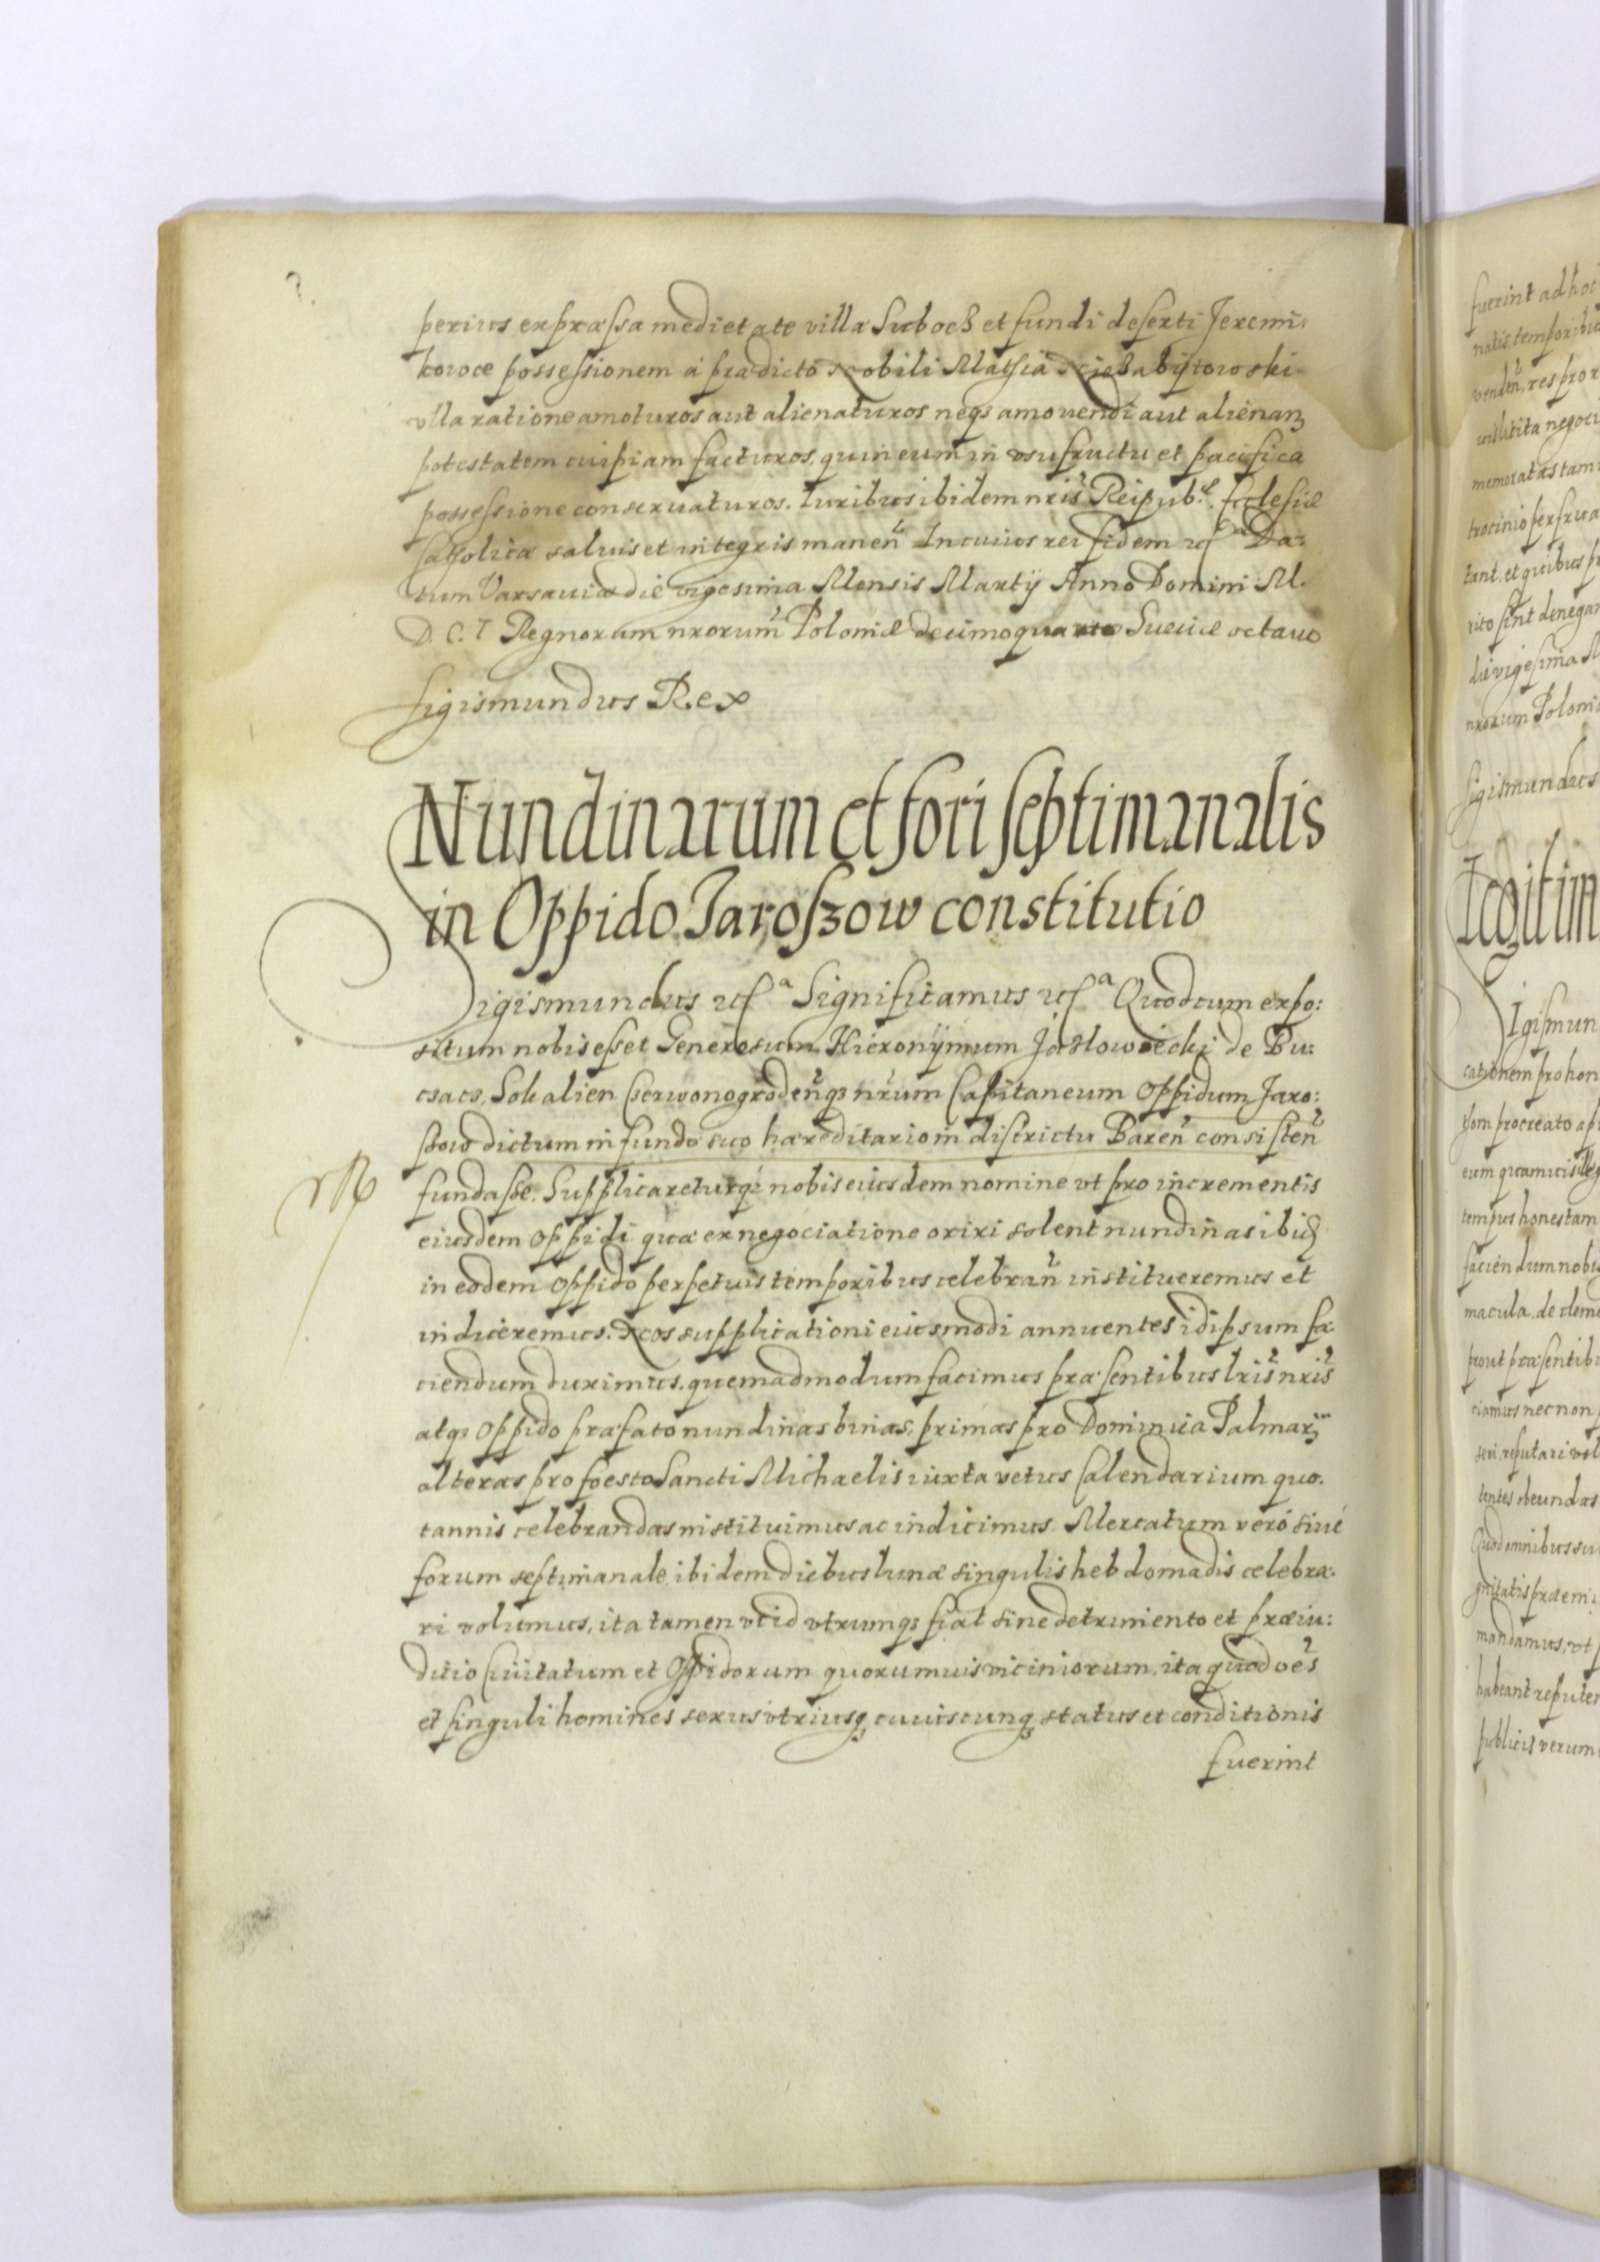 perius expræssa medietate villæ Suboch et fundi deserti Jeremi
kowce possessionem a prædicto Nobili Mathia
vlla ratione amoturos aut alienaturos neqȝ amovendi aut alienanȝ
potestatem cuipiam facturos, quin eum in vsufructu et pacifica
possessione conseruaturos. Iuribus ibidem nris Reipubˡ. Ecclesiæ
Catholicæ saluis et integris manen̄ In cuius rei fidem Da:
tum Varsauiæ die vigesima Mensis Martij Anno Domini M.
D. C. I Regnorum nrorum Poloniæ decimoquarto Sueciæ octauo
Sigismundus Rex
Nundinarum et fori septimanalis
in Oppido Jaroszow constitutio
Sigismundus etcᵃ Significamus etcᵃ Quod cum expo:
situm nobis esset Generosum Hieronÿmum Jazlowiecki de Bu:
czacz, Czerwonogroden̄qȝ nrum Capitaneum Oppidum Jaro:
szow dictum in fundo suo hæreditario in districtu Baren̄ consisten̄
fundasse. Supplicareturqȝ nobis eiusdem nomine vt pro incrementis
eiusdem oppidi quæ ex negociatione oriri solent nundinas ibid
in eodem oppido perpetuis temporibus celebran̄ institueremus et
indiceremus. Nos supplicationi eiusmodi annuentes id ipsum fa
ciendum duximus, quemadmodum facimus præsentibus lris nris
atqȝ oppido præfato nundinas binas, primas pro Dominica Palmarȝ
alteras pro foesto Sancti Michaelis iuxta vetus Calendarium quo
tannis celebrandas instituimus ac indicimus. Mercatum vero siue
forum septimanale ibidem diebus lunæ singulis hebdomadis celebra
ri volumus, ita tamen vt id vtrumqȝ fiat sine detrimento et præiu:
ditio Ciuitatum et Oppidorum quorumuis viciniorum. ita quod oēs
et singuli homines sexus vtriusqȝ cuiuscunqȝ status et conditionis
fuerint
fuerint ad hoc
natis temporibus
memoratas tam
tant, et quibus
die vigesima M
nrorum Poloni
Sigismundus
Legitim
Sigismun
cationem pro hon
tempus honestam
faciendum nobis
macula de clem
prout præsentib
Quod omnibus
mandamus, vt
publicis verum